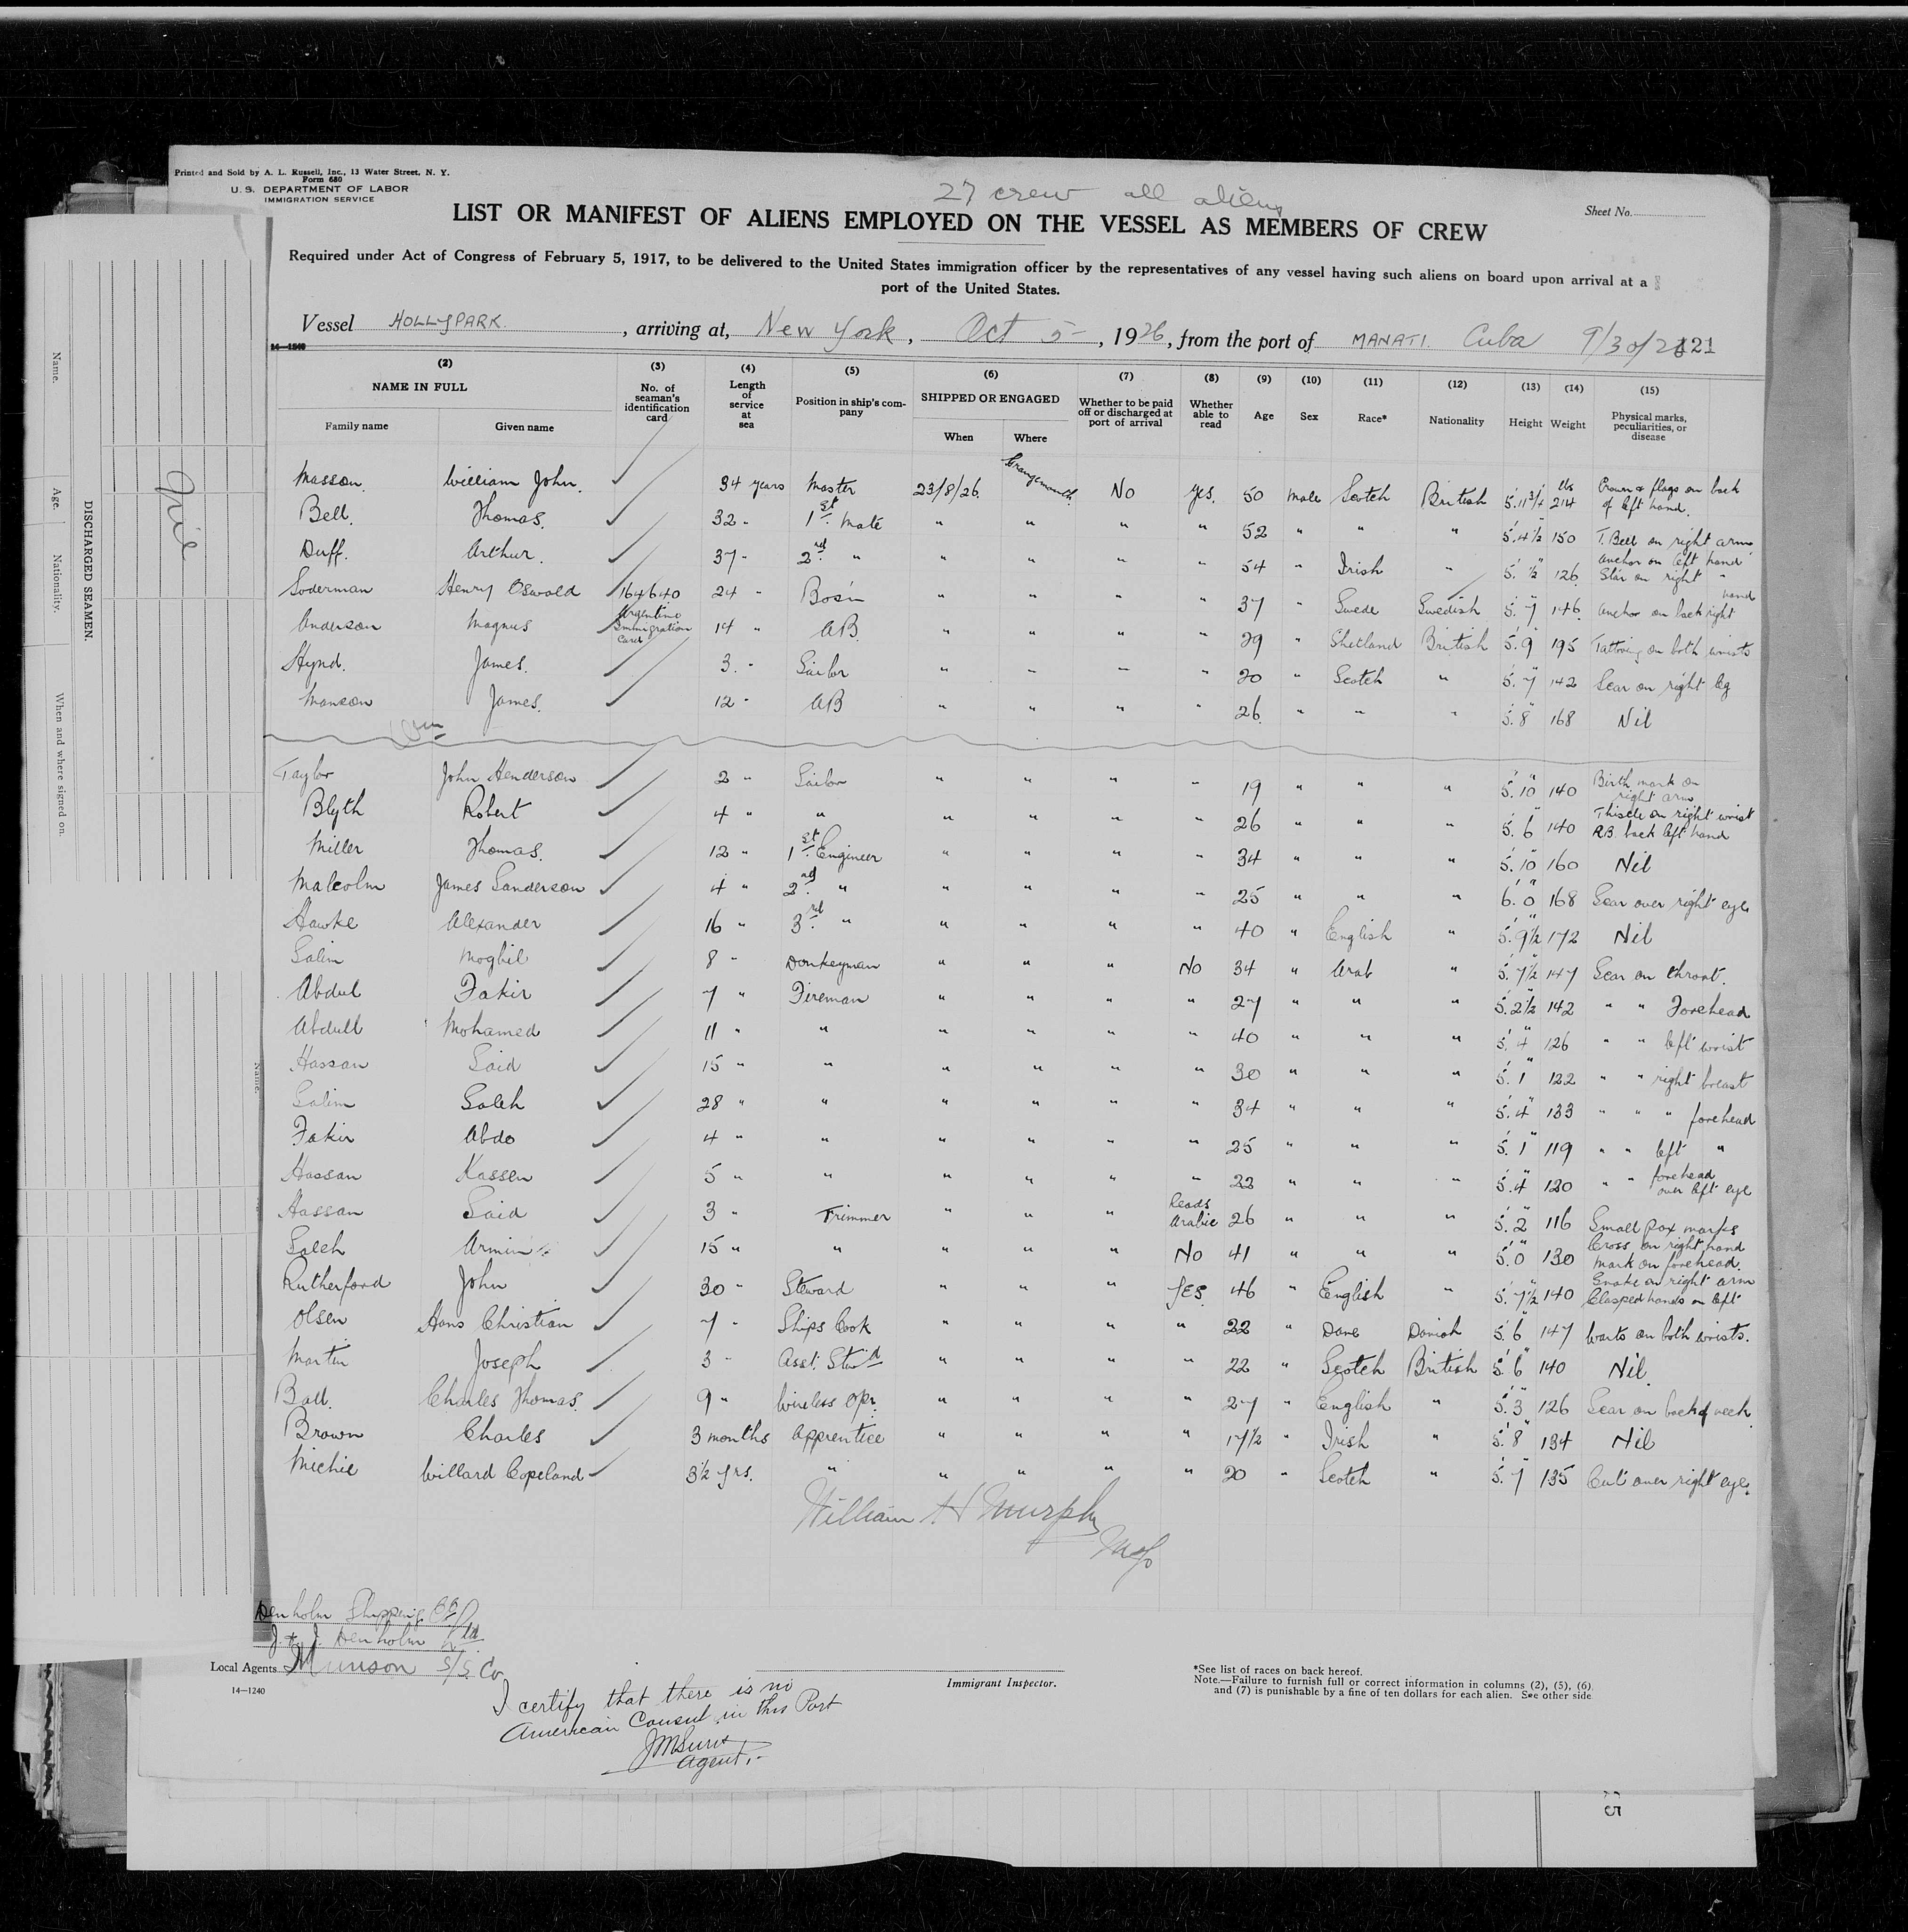 Printed and Sold by A. L. Russell, Inc., 13 Water Street, N. Y.
Form 680
U. S. DEPARTMENT OF LABOR
IMMIGRATION SERVICE
27 crew all aliens
Sheet No.
LIST OR MANIFEST OF ALIENS EMPLOYED ON THE VESSEL AS MEMBERS OF CREW
Required under Act of Congress of February 5, 1917, to be delivered to the United States immigration officer by the representatives of any vessel having such aliens on board upon arrival at a
port of the United States.
Vessel HOLLYPARK. , arriving at, New York , Oct 5 , 1926, from the port of MANATI. Cuba 9/30/26 121
14—1240
(2) (3) (4) (5) (6) (7) (8) (9) (10) (11) (12) (13) (14) (15)
NAME IN FULL No. of seaman's identification card Length of service at sea Position in ship's company SHIPPED OR ENGAGED Whether to be paid off or discharged at port of arrival Whether able to read Age Sex Race* Nationality Height Weight Physical marks, peculiarities, or disease
Family name Given name When Where
Masson. William John. 34 years Master 23/8/26. Grangemouth No Yes. 50 Male Scotch British 5' 11 3/4" 214 lbs Crown & flags on back of left hand.
Bell. Thomas. 32 " 1st Mate " " " " 52 " " " 5' 4 1/2" 150 T. Bell on right arm
Duff. Arthur. 37 " 2nd " " " " " 54 " Irish " 5' 1/2" 126 Anchor on left hand Star on right "
Soderman Henry Oswald 164640 24 " Bos'n " " " " 37 " Swede Swedish 5' 7" 146 Anchor on back right hand
Anderson Magnus Argentine Immigration Card 14 " AB. " " " " 29 " Shetland British 5' 9" 195 Tattooing on both wrists
Hynd. James. 3 " Sailor " " " " 20 " Scotch " 5' 7" 142 Scar on right leg
Manson James. 12 " AB " " " " 26 " " " 5' 8" 168 Nil
Taylor John Henderson 2 " Sailor " " " " 19 " " " 5' 10" 140 Birth mark on right arm
Blyth Robert 4 " " " " " " 26 " " " 5' 6" 140 Thistle on right wrist R.B. back left hand
Miller Thomas. 12 " 1st Engineer " " " " 34 " " " 5' 10" 160 Nil
Malcolm James Sanderson 4 " 2nd " " " " " 25 " " " 6' 0" 168 Scar over right eye
Hawke Alexander 16 " 3rd " " " " " 40 " English " 5' 9 1/2" 172 Nil
Salim Moghil 8 " Donkeyman " " " No 34 " Arab " 5' 7 1/2" 147 Scar on throat.
Abdul Fakir 7 " Fireman " " " " 27 " " " 5' 2 1/2" 142 " " Forehead
Abdull Mohamed 11 " " " " " " 40 " " " 5' 4" 126 " " left wrist
Hassan Said 15 " " " " " " 30 " " " 5' 1" 122 " " right breast
Salim Saleh 28 " " " " " " 34 " " " 5' 4" 133 " " " forehead
Fakir Abdo 4 " " " " " " 25 " " " 5' 1" 119 " " left "
Hassan Kassen 5 " " " " " " 22 " " " 5' 4" 120 " " forehead over left eye
Hassan Said 3 " Trimmer " " " Reads Arabic 26 " " " 5' 2" 116 Small pox marks
Saleh Armin 15 " " " " " No 41 " " " 5' 0" 130 Cross on right hand Mark on forehead.
Rutherford John 30 " Steward " " " YES 46 " English " 5' 7 1/2" 140 Snake on right arm Clasped hands on left
Olsen Hans Christian 7 " Ships Cook " " " " 22 " Dane Danish 5' 6" 147 Warts on both wrists.
Martin Joseph 3 " Asst. Stwd " " " " 22 " Scotch British 5' 6" 140 Nil.
Ball. Charles Thomas. 9 " Wireless Opr. " " " " 27 " English " 5' 3" 126 Scar on back of neck
Brown Charles 3 months Apprentice " " " " 17 1/2 " Irish " 5' 8" 134 Nil
Michie Willard Copeland 3 1/2 yrs. " " " " " 20 " Scotch " 5' 7" 135 Cut over right eye.
William H Murphy
Denholm Shipping Co
J. & J. Denholm Ltd.
Local Agents Munson S/S Co
14—1240
Immigrant Inspector.
*See list of races on back hereof.
Note.—Failure to furnish full or correct information in columns (2), (5), (6),
and (7) is punishable by a fine of ten dollars for each alien. See other side
I certify that there is no
American Consul in this Port
Agent.
DISCHARGED SEAMEN.
Name.
Age.
Nationality.
When and where signed on.
Name.